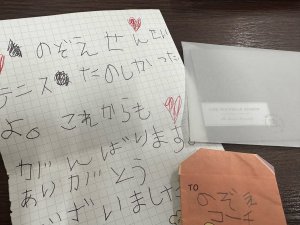 のぞえせんせい
テニスたのしかった
よ。これからも
がんばります。
ありがとう
ございました
TO
のぞえ
コーチ